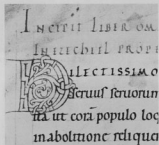 INCIPIT LIBER OM
INTELLECTUS PROPT
DILECTISSIMO
seruus seruorum
ita ut cora populo loq
in abolitione reliqui